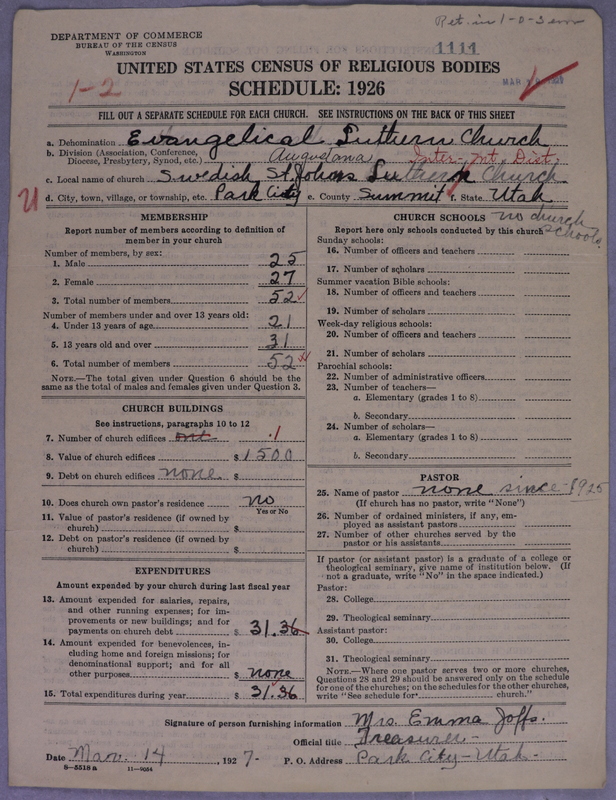 Ret. in 1-0-3 em
DEPARTMENT OF COMMERCE
BUREAU OF THE CENSUS
WASHINGTON
1111
UNITED STATES CENSUS OF RELIGIOUS BODIES
MAR
1-2
SCHEDULE: 1926
FILL OUT A SEPARATE SCHEDULE FOR EACH CHURCH. SEE INSTRUCTIONS ON THE BACK OF THIS SHEET
a. Denomination Evangelical Luthern Church
b. Division (Association, Conference, Diocese, Presbytery, Synod, etc.) Augustana Inter-Mt, Dist.
c. Local name of church Swedish St Johns Lutheran Church
U d. City, town, village, or township, etc. Park City e. County Summit f. State Utah
MEMBERSHIP
Report number of members according to definition of
member in your church
Number of members, by sex:
1. Male 25
2. Female 27
3. Total number of members 52
Number of members under and over 13 years old:
4. Under 13 years of age 21
5. 13 years old and over 31
6. Total number of members 52
NOTE.—The total given under Question 6 should be the
same as the total of males and females given under Question 3.
CHURCH BUILDINGS
See instructions, paragraphs 10 to 12
7. Number of church edifices one 1
8. Value of church edifices $1500
9. Debt on church edifices none. $
10. Does church own pastor's residence no
Yes or No
11. Value of pastor's residence (if owned by
church) $
12. Debt on pastor's residence (if owned by
church) $
EXPENDITURES
Amount expended by your church during last fiscal year
13. Amount expended for salaries, repairs,
and other running expenses; for im-
provements or new buildings; and for
payments on church debt $ 31.36
14. Amount expended for benevolences, in-
cluding home and foreign missions; for
denominational support; and for all
other purposes $ none
15. Total expenditures during year $ 31.36
CHURCH SCHOOLS no church schools
Report here only schools conducted by this church
Sunday schools:
16. Number of officers and teachers
17. Number of scholars
Summer vacation Bible schools:
18. Number of officers and teachers
19. Number of scholars
Week-day religious schools:
20. Number of officers and teachers
21. Number of scholars
Parochial schools:
22. Number of administrative officers
23. Number of teachers—
a. Elementary (grades 1 to 8)
b. Secondary
24. Number of scholars—
a. Elementary (grades 1 to 8)
b. Secondary
PASTOR
25. Name of pastor none since 1925
(If church has no pastor, write "None")
26. Number of ordained ministers, if any, em-
ployed as assistant pastors
27. Number of other churches served by the
pastor or his assistants
If pastor (or assistant pastor) is a graduate of a college or
theological seminary, give name of institution below. (If
not a graduate, write "No" in the space indicated.)
Pastor:
28. College
29. Theological seminary
Assistant pastor:
30. College
31. Theological seminary
NOTE.—Where one pastor serves two or more churches,
Questions 28 and 29 should be answered only on the schedule
for one of the churches; on the schedules for the other churches,
write "See schedule for church."
Signature of person furnishing information Mrs. Emma Joffs.
Official title Treasurer-
Date Mar. 14, 1927- P. O. Address Park City-Utah-
8-5518a 11-9054